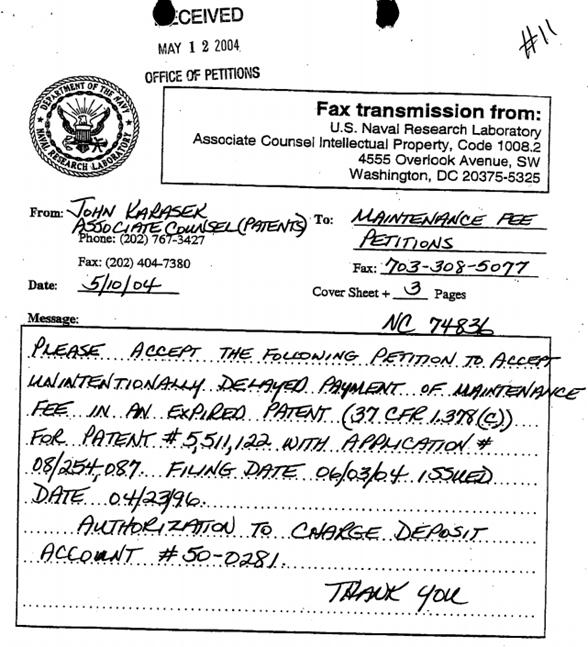 RECEIVED
MAY 12 2004
OFFICE OF PETITIONS
#11
DEPARTMENT OF THE NAVY
NAVAL RESEARCH LABORATORY
Fax transmission from:
U.S. Naval Research Laboratory
Associate Counsel Intellectual Property, Code 1008.2
4555 Overlook Avenue, SW
Washington, DC 20375-5325
From: JOHN KARASEK
ASSOCIATE COUNSEL (PATENTS)
Phone: (202) 767-3427
Fax: (202) 404-7380
Date: 5/10/04
To: MAINTENANCE FEE
PETITIONS
Fax: 703-308-5077
Cover Sheet + 3 Pages
Message:
NC 74836
PLEASE ACCEPT THE FOLLOWING PETITION TO ACCEPT
UNINTENTIONALLY DELAYED PAYMENT OF MAINTENANCE
FEE IN AN EXPIRED PATENT (37 CFR 1.378(C))
FOR PATENT # 5,511,122 WITH APPLICATION #
08/254,087. FILING DATE 06/03/04 ISSUED
DATE 04/23/96.
AUTHORIZATION TO CHARGE DEPOSIT
ACCOUNT # 50-0281.
THANK YOU